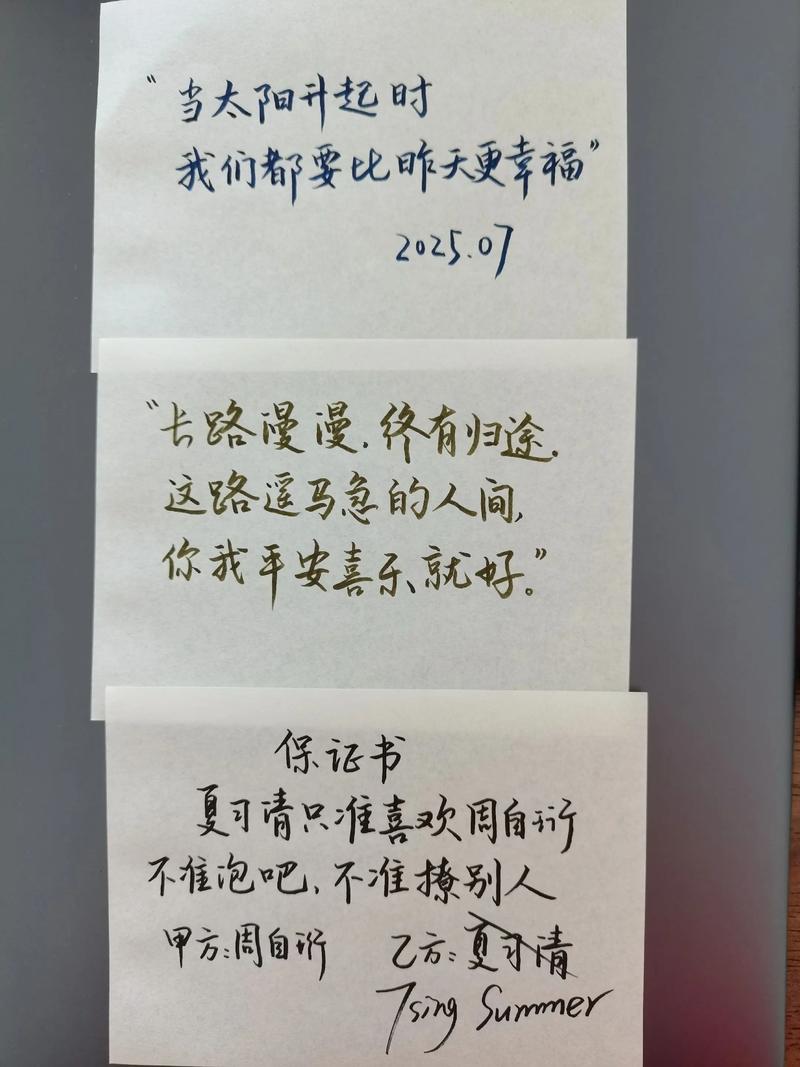 “当太阳升起时
我们都要比昨天更幸福”
2025.07
“长路漫漫，终有归途.
这路遥马急的人间,
你我平安喜乐就好。”
保证书
夏习清只准喜欢周自珩
不准泡吧，不准撩别人
甲方：周自珩 乙方：夏习清
Tsing Summer